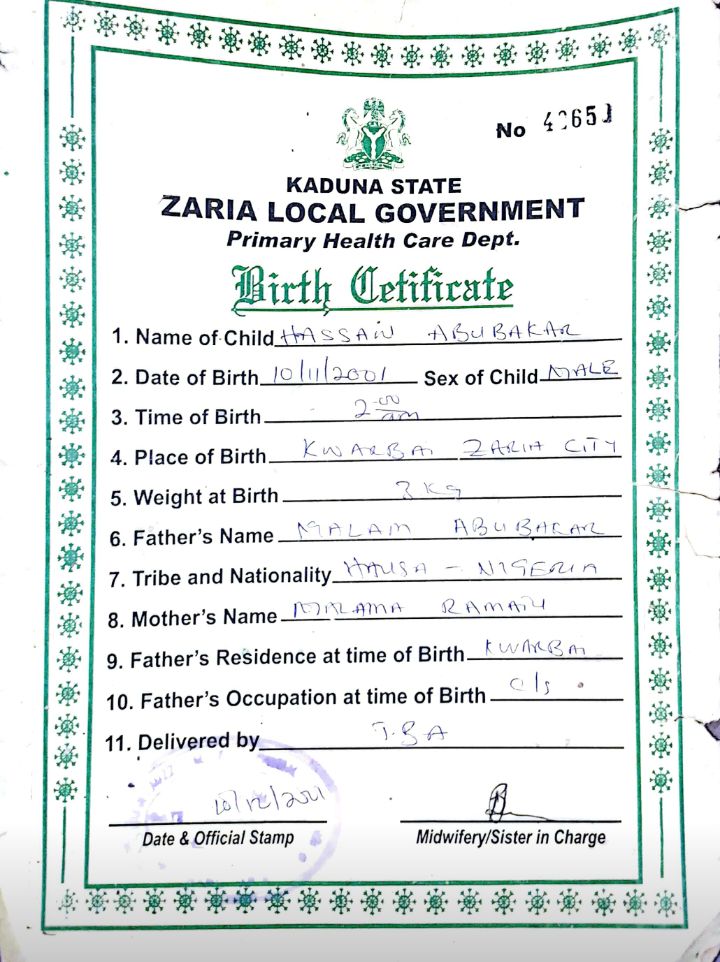 No
KADUNA STATE
ZARIA LOCAL GOVERNMENT
Primary Health Care Dept.
Birth Cetificate
1. Name of Child HASSAIN ABUBAKAR
2. Date of Birth 10/11/2001 Sex of Child MALE
3. Time of Birth 2-00 am
4. Place of Birth KWARBAI ZARIA CITY
5. Weight at Birth 3 KG
6. Father's Name MALAM ABUBAKAR
7. Tribe and Nationality HAUSA - NIGERIA
8. Mother's Name
9. Father's Residence at time of Birth KWARBAI
10. Father's Occupation at time of Birth
11. Delivered by T.B.A
Date & Official Stamp Midwifery/Sister in Charge